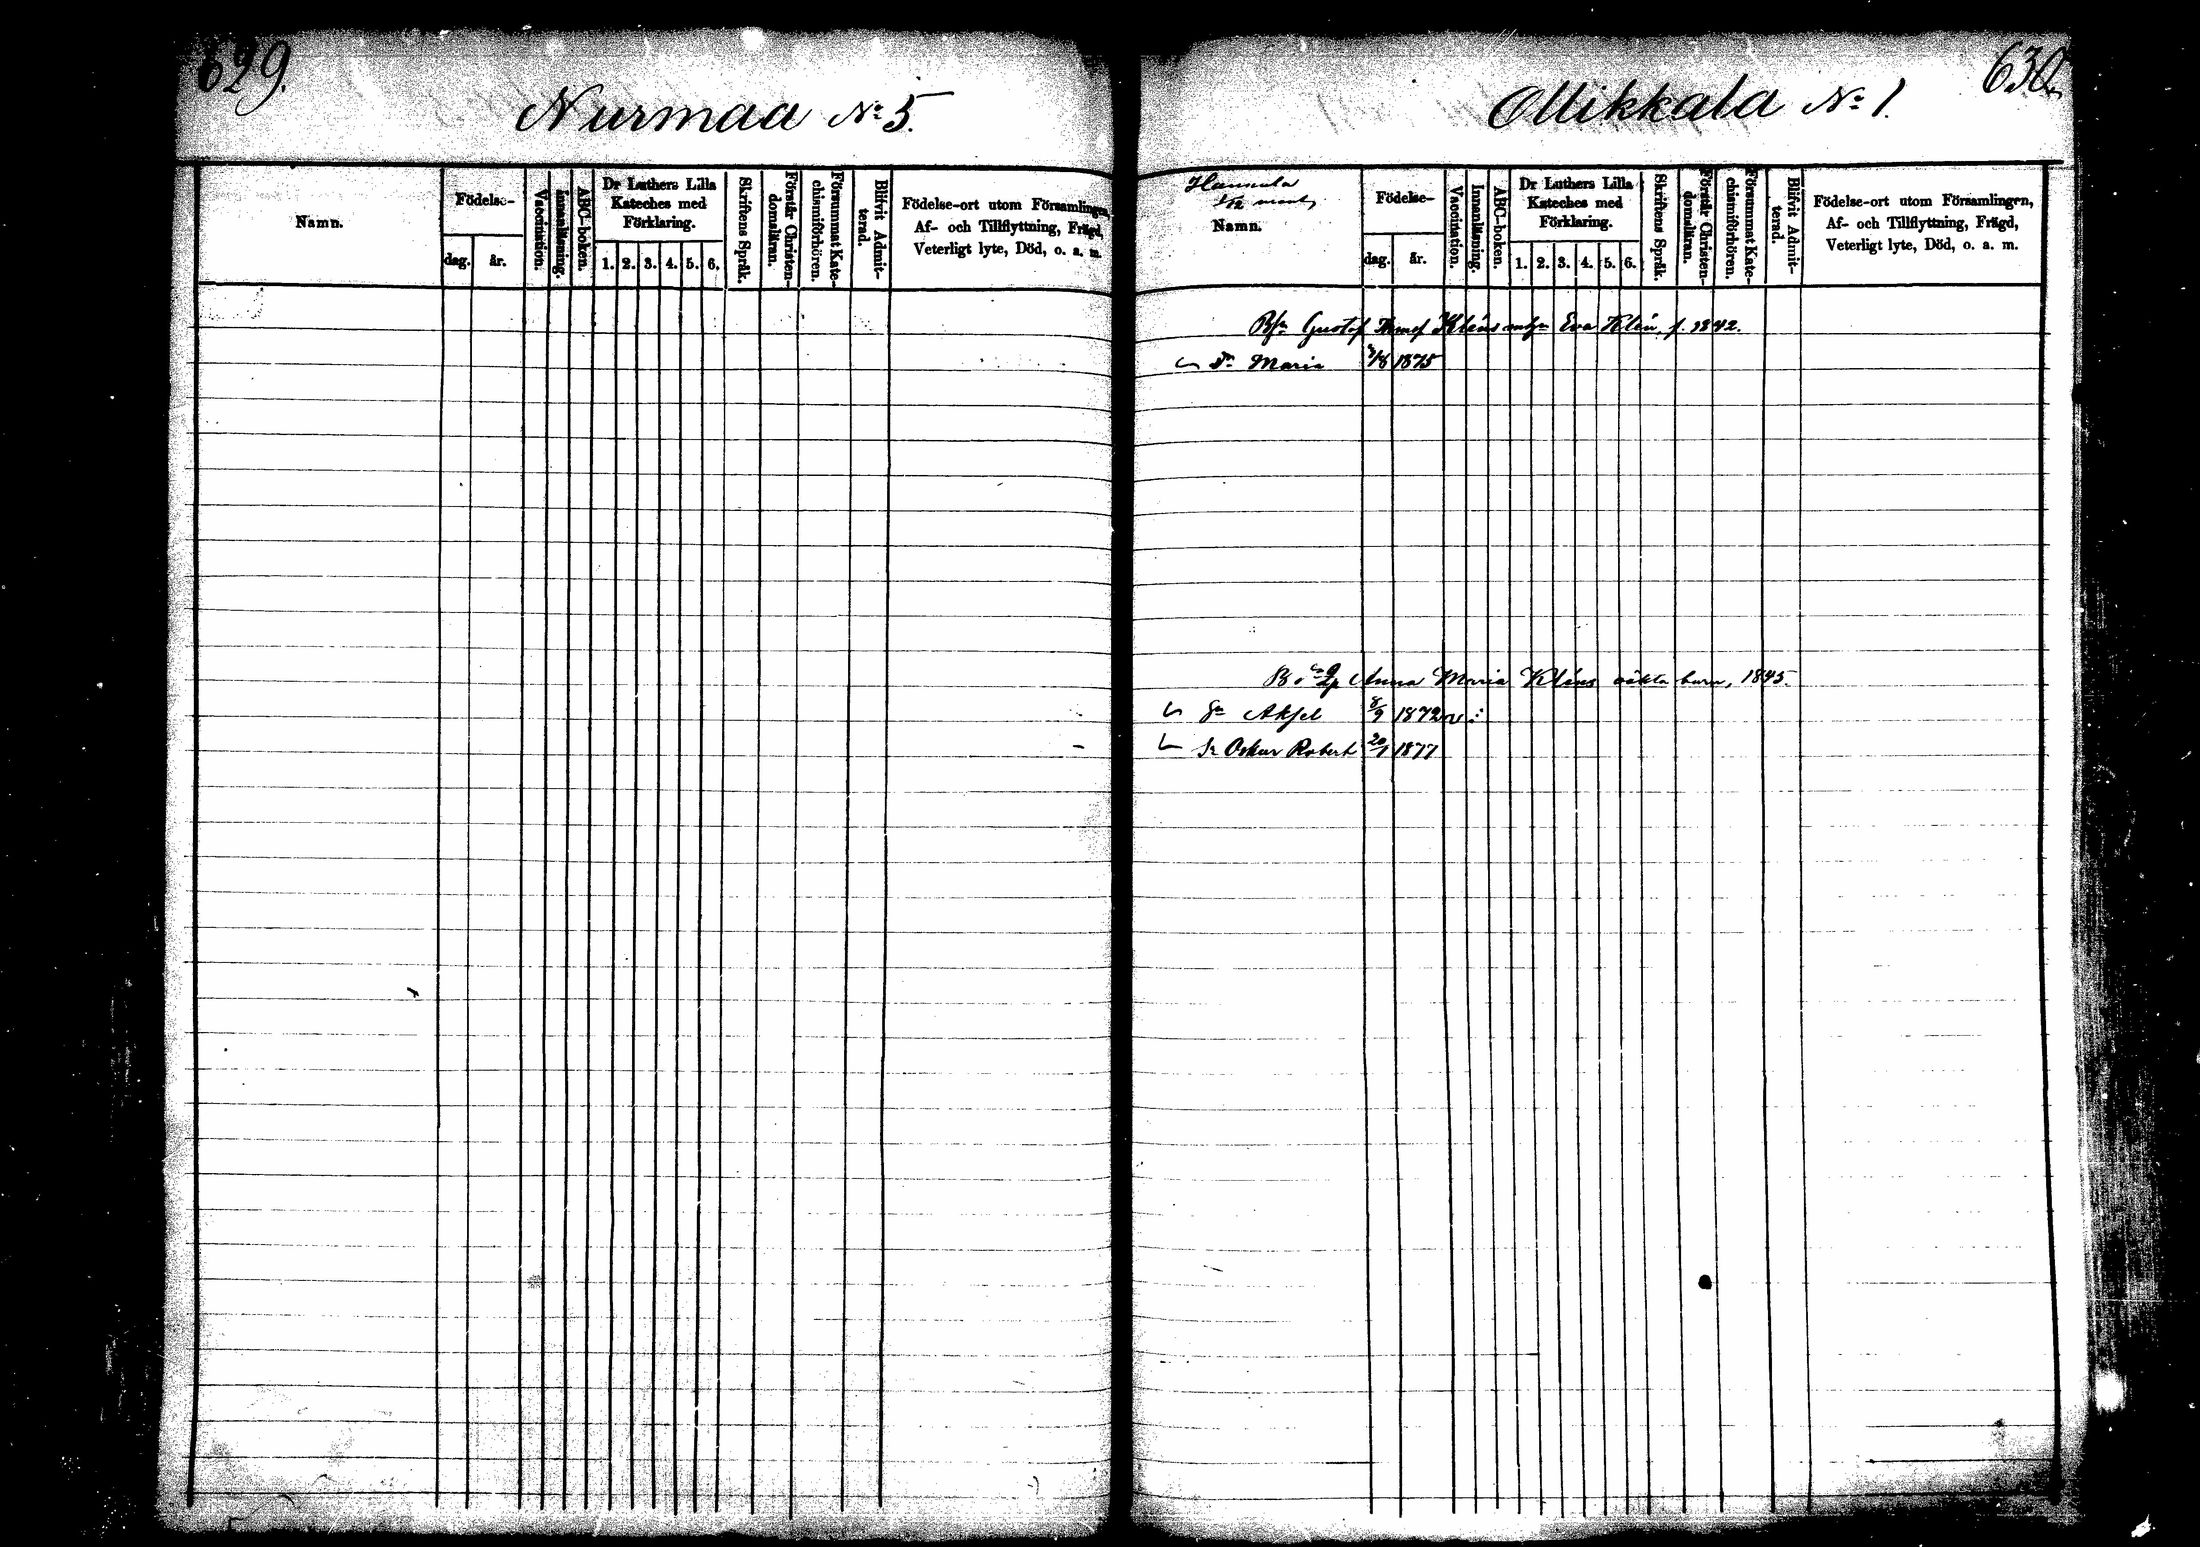 629.
Nurmaa № 5.
Namn.
Födelse-
dag.
år.
Vaccination.
Innanläsning.
ABC-boken.
Dr Luthers Lilla
Kateches med
Förklaring.
1. 2. 3. 4. 5. 6.
Skriftens Språk.
Förstår Christen-
domsläran.
Försummat Kate-
chismiförhören.
Blifvit Admit-
terad.
Födelse-ort utom Församlingen,
Af- och Tillflyttning, Frägd,
Veterligt lyte, Död, o. a. m.
630.
Ollikkala № 1.
Hannula
1/12 mant
Namn.
Födelse-
dag.
år.
Vaccination.
Innanläsning.
ABC-boken.
Dr Luthers Lilla
Kateches med
Förklaring.
1. 2. 3. 4. 5. 6.
Skriftens Språk.
Förstår Christen-
domsläran.
Försummat Kate-
chismiförhören.
Blifvit Admit-
terad.
Födelse-ort utom Församlingen,
Af- och Tillflyttning, Frägd,
Veterligt lyte, Död, o. a. m.
Gustaf Kléns Eva Klén, f. 1842.
Maria 1875
Anna Maria Kléns oäkta barn, 1845.
Aksel 8/9 1872 v
Oskar Robert 20/1 1877